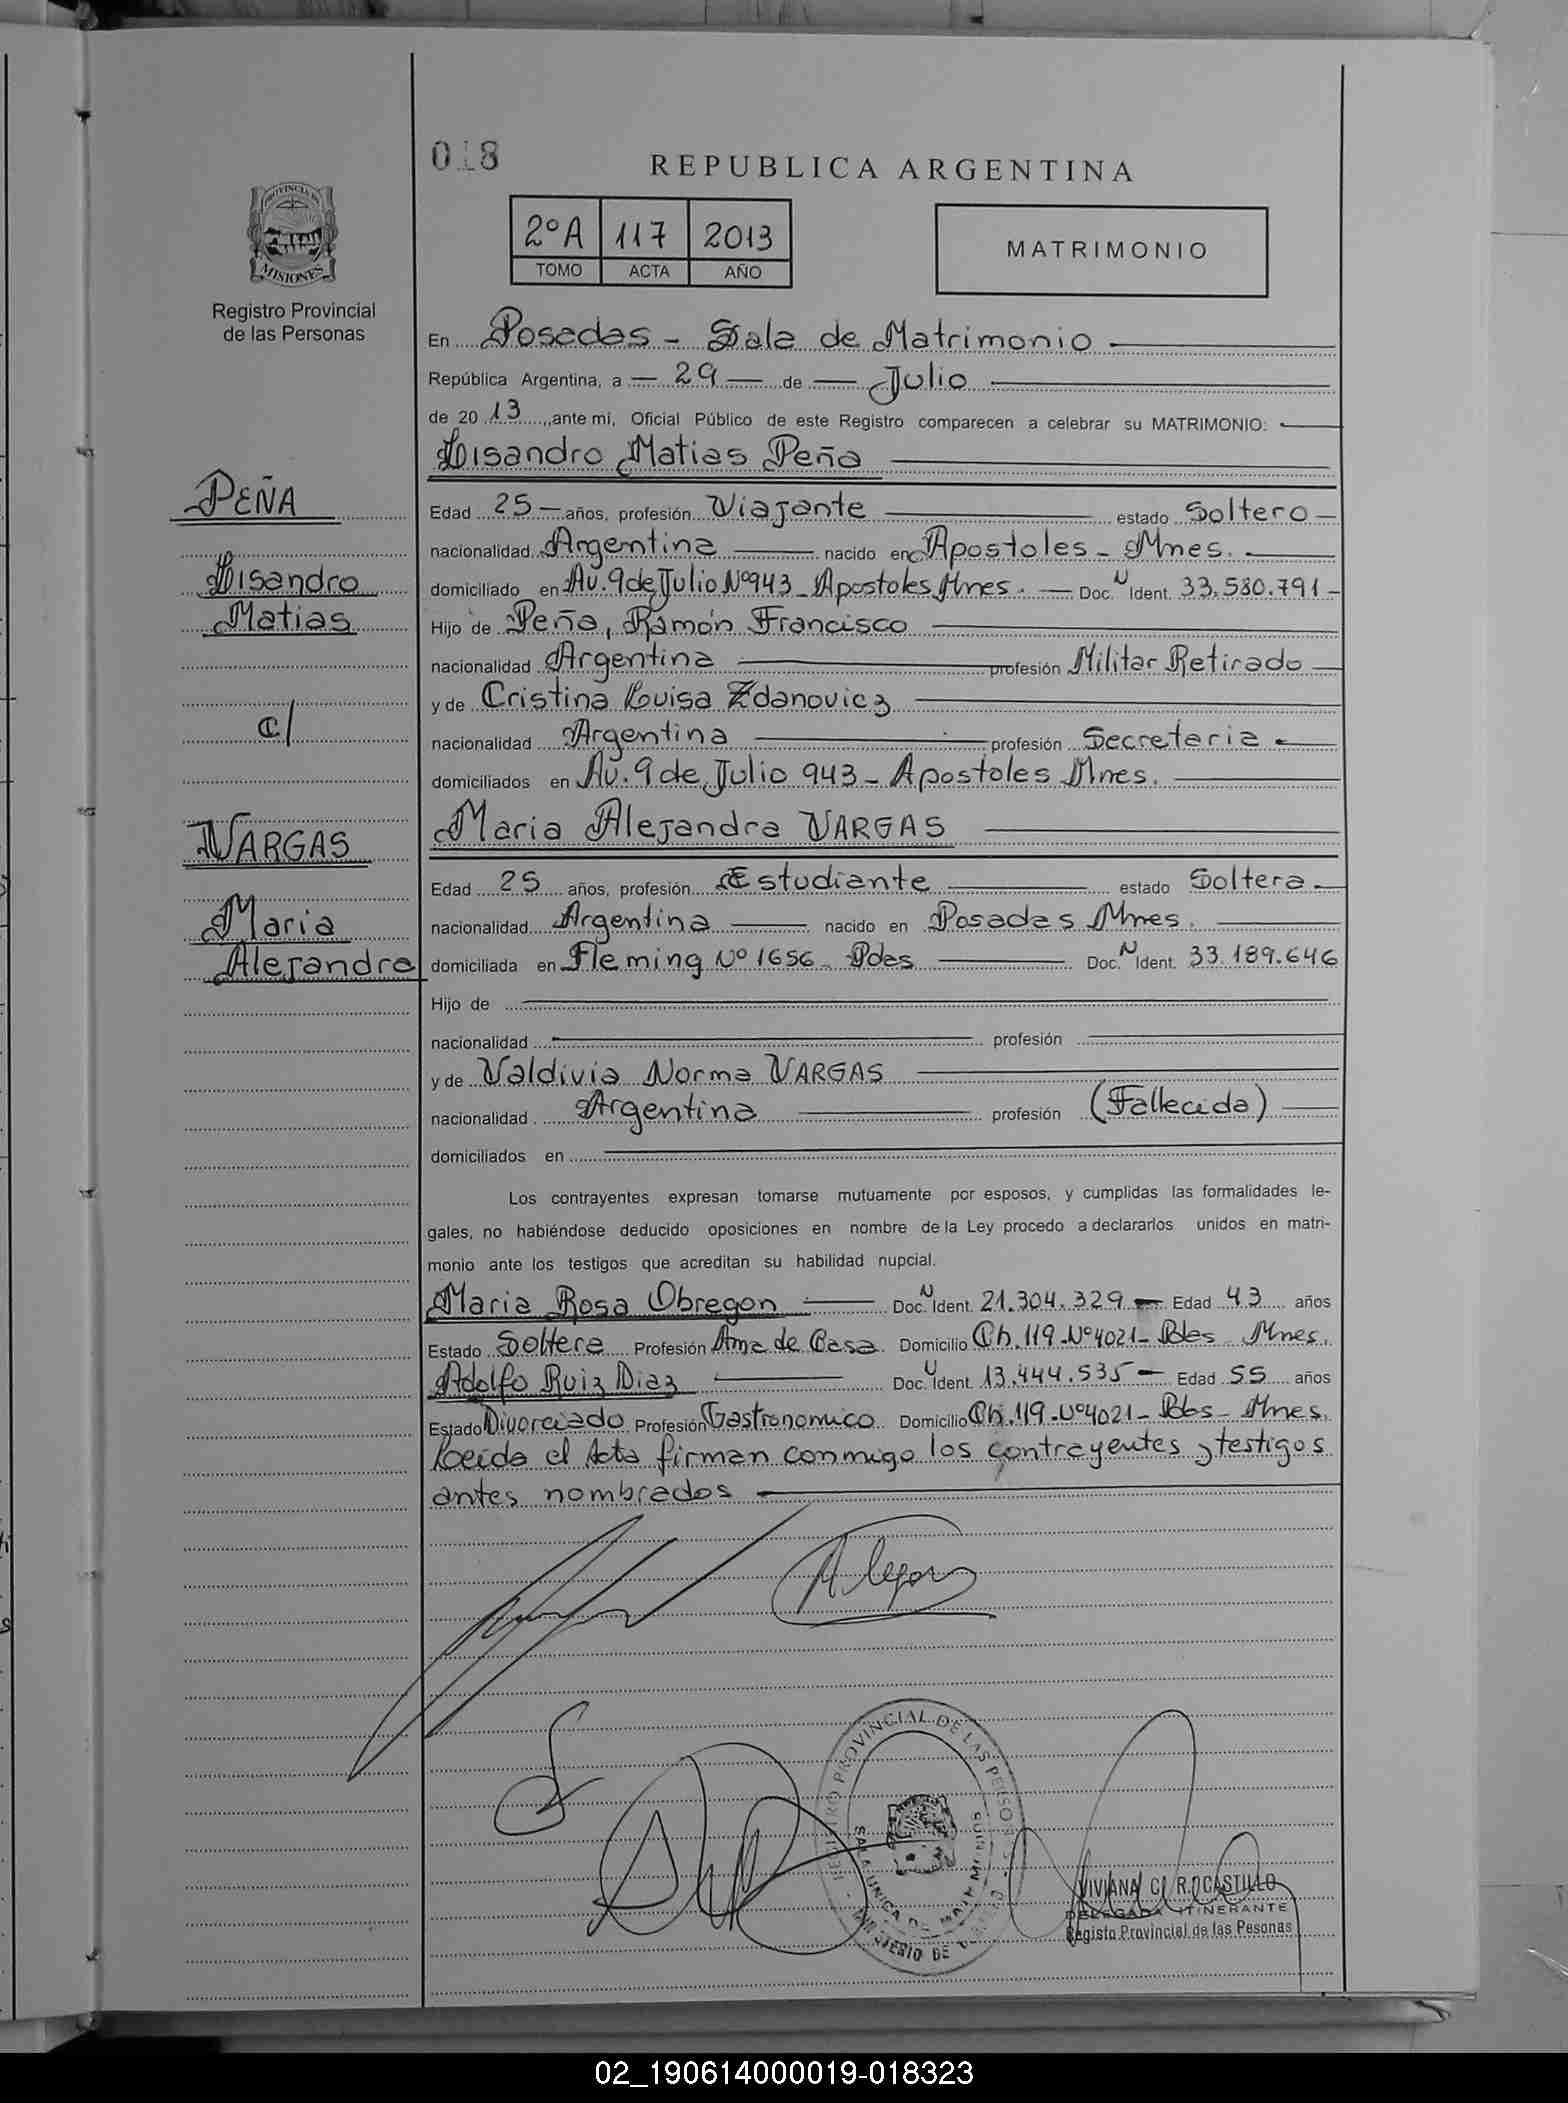 018
REPUBLICA ARGENTINA
PROVINCIA DE
MISIONES
Registro Provincial
de las Personas
2º A 117 2013
TOMO ACTA AÑO
MATRIMONIO
En Posadas - Sala de Matrimonio
República Argentina, a - 29 - de - Julio
de 20 13, ante mi, Oficial Público de este Registro comparecen a celebrar su MATRIMONIO:
Lisandro Matias Peña
PEÑA
Lisandro
Matias
c/
VARGAS
Maria
Alejandra
Edad 25 - años, profesión Viajante estado Soltero -
nacionalidad Argentina nacido en Apostoles - Mnes.
domiciliado en Av. 9 de Julio Nº 943 - Apostoles Mnes. - Doc. N Ident. 33.580.791 -
Hijo de Peña, Ramón Francisco
nacionalidad Argentina profesión Militar Retirado
y de Cristina Luisa Zdanovicz
nacionalidad Argentina profesión Secretaria
domiciliados en Av. 9 de Julio 943 - Apostoles Mnes.
Maria Alejandra VARGAS
Edad 25 años, profesión Estudiante estado Soltera
nacionalidad Argentina nacido en Posadas Mnes.
domiciliada en Fleming Nº 1656 - Pdas Doc. N Ident. 33.189.646
Hijo de
nacionalidad profesión
y de Valdivia Norma VARGAS
nacionalidad Argentina profesión (Fallecida)
domiciliados en
Los contrayentes expresan tomarse mutuamente por esposos, y cumplidas las formalidades le-
gales, no habiéndose deducido oposiciones en nombre de la Ley procedo a declararlos unidos en matri-
monio ante los testigos que acreditan su habilidad nupcial.
Maria Rosa Obregon Doc. N Ident. 21.304.329 - Edad 43 años
Estado Soltera Profesión Ama de Casa Domicilio Ch. 119 - Nº 4021 - Pdas Mnes.
Adolfo Ruiz Diaz Doc. N Ident. 13.444.535 - Edad 55 años
Estado Divorciado Profesión Gastronomico Domicilio Ch. 119 - Nº 4021 - Pdas - Mnes.
Leida el Acta firman conmigo los contrayentes y testigos
antes nombrados
REGISTRO PROVINCIAL DE LAS PERSONAS
MINISTERIO DE
VIVIANA C. R. CASTILLO
DELEGADA ITINERANTE
Registo Provincial de las Pesonas
02_190614000019-018323